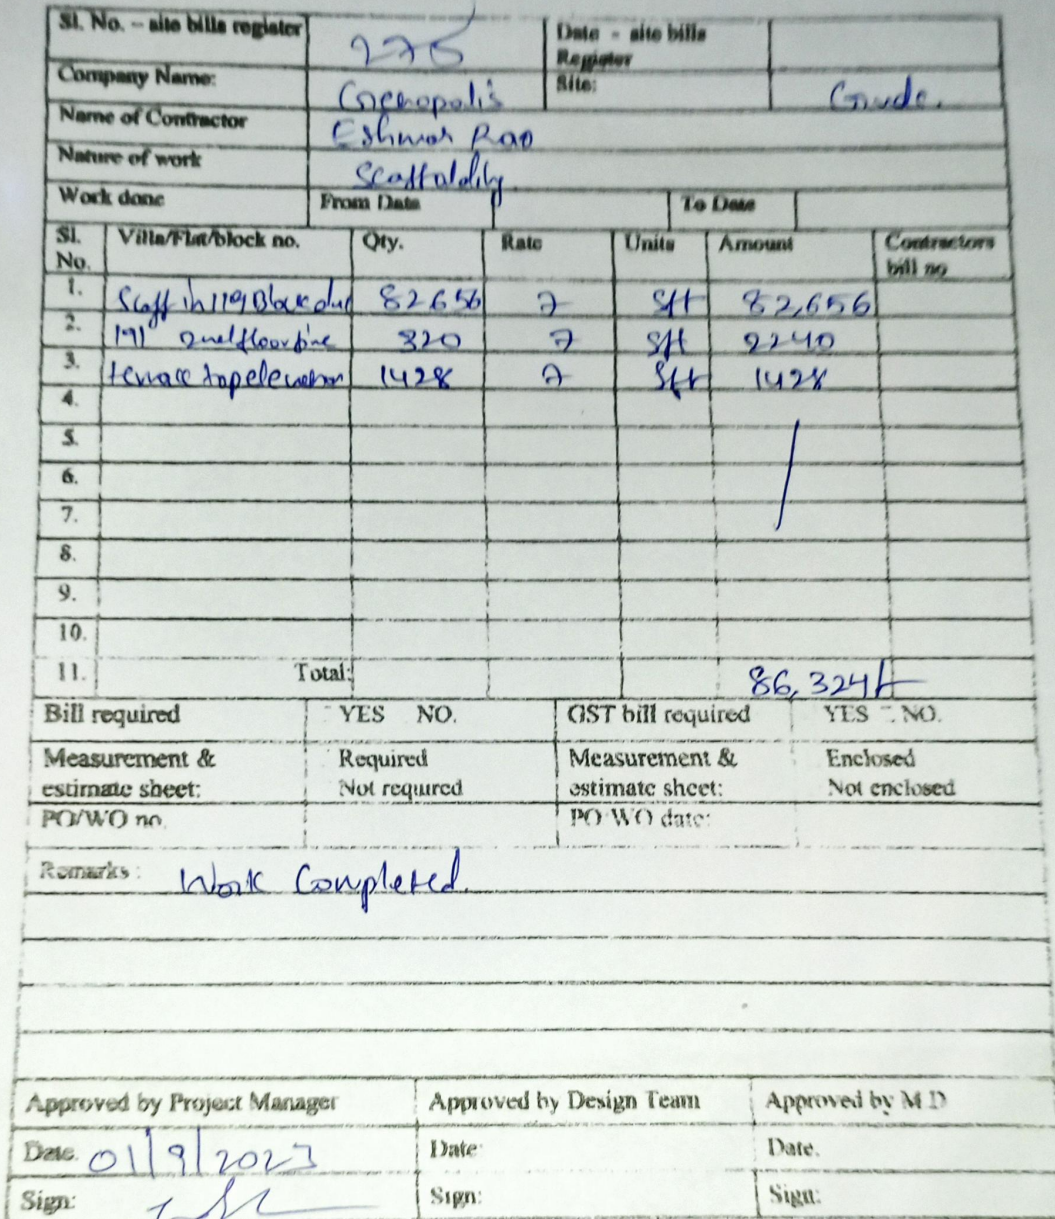 Sl. No. - site bills register 275 Date - site bills Register
Company Name: Genopolis Site: Gvrdc.
Name of Contractor Eshwar Rao
Nature of work Scaffolding
Work done From Date To Date
Sl. No. Villa/Flat/block no. Qty. Rate Units Amount Contractors bill no
1. Scaff in 119 Block duct 82656 7 Sft 82,656
2. 191 2nd floor 320 7 Sft 2240
3. terrace top elevation 1428 7 Sft 1428
4.
5.
6.
7.
8.
9.
10.
11. Total: 86,324/-
Bill required YES NO. GST bill required YES NO.
Measurement & estimate sheet: Required Not required Measurement & estimate sheet: Enclosed Not enclosed
PO/WO no. PO WO date:
Remarks: Work Completed.
Approved by Project Manager Approved by Design Team Approved by M D
Date. 01/9/2023 Date: Date.
Sign: Sign: Sign: